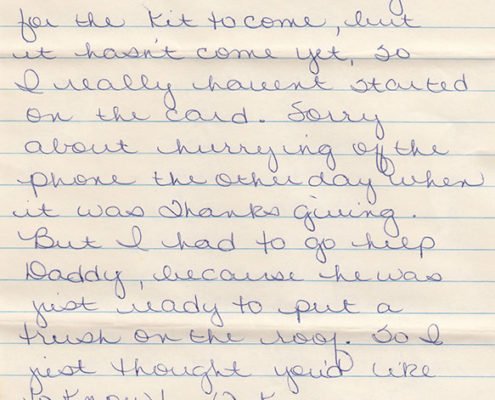 for the kit to come, but
it hasn't come yet, so
I really havent started
on the card. Sorry
about hurrying off the
phone the other day when
it was Thanksgiving.
But I had to go help
Daddy, because he was
just ready to put a
trush on the roof. So I
just thought you'd like
to know!